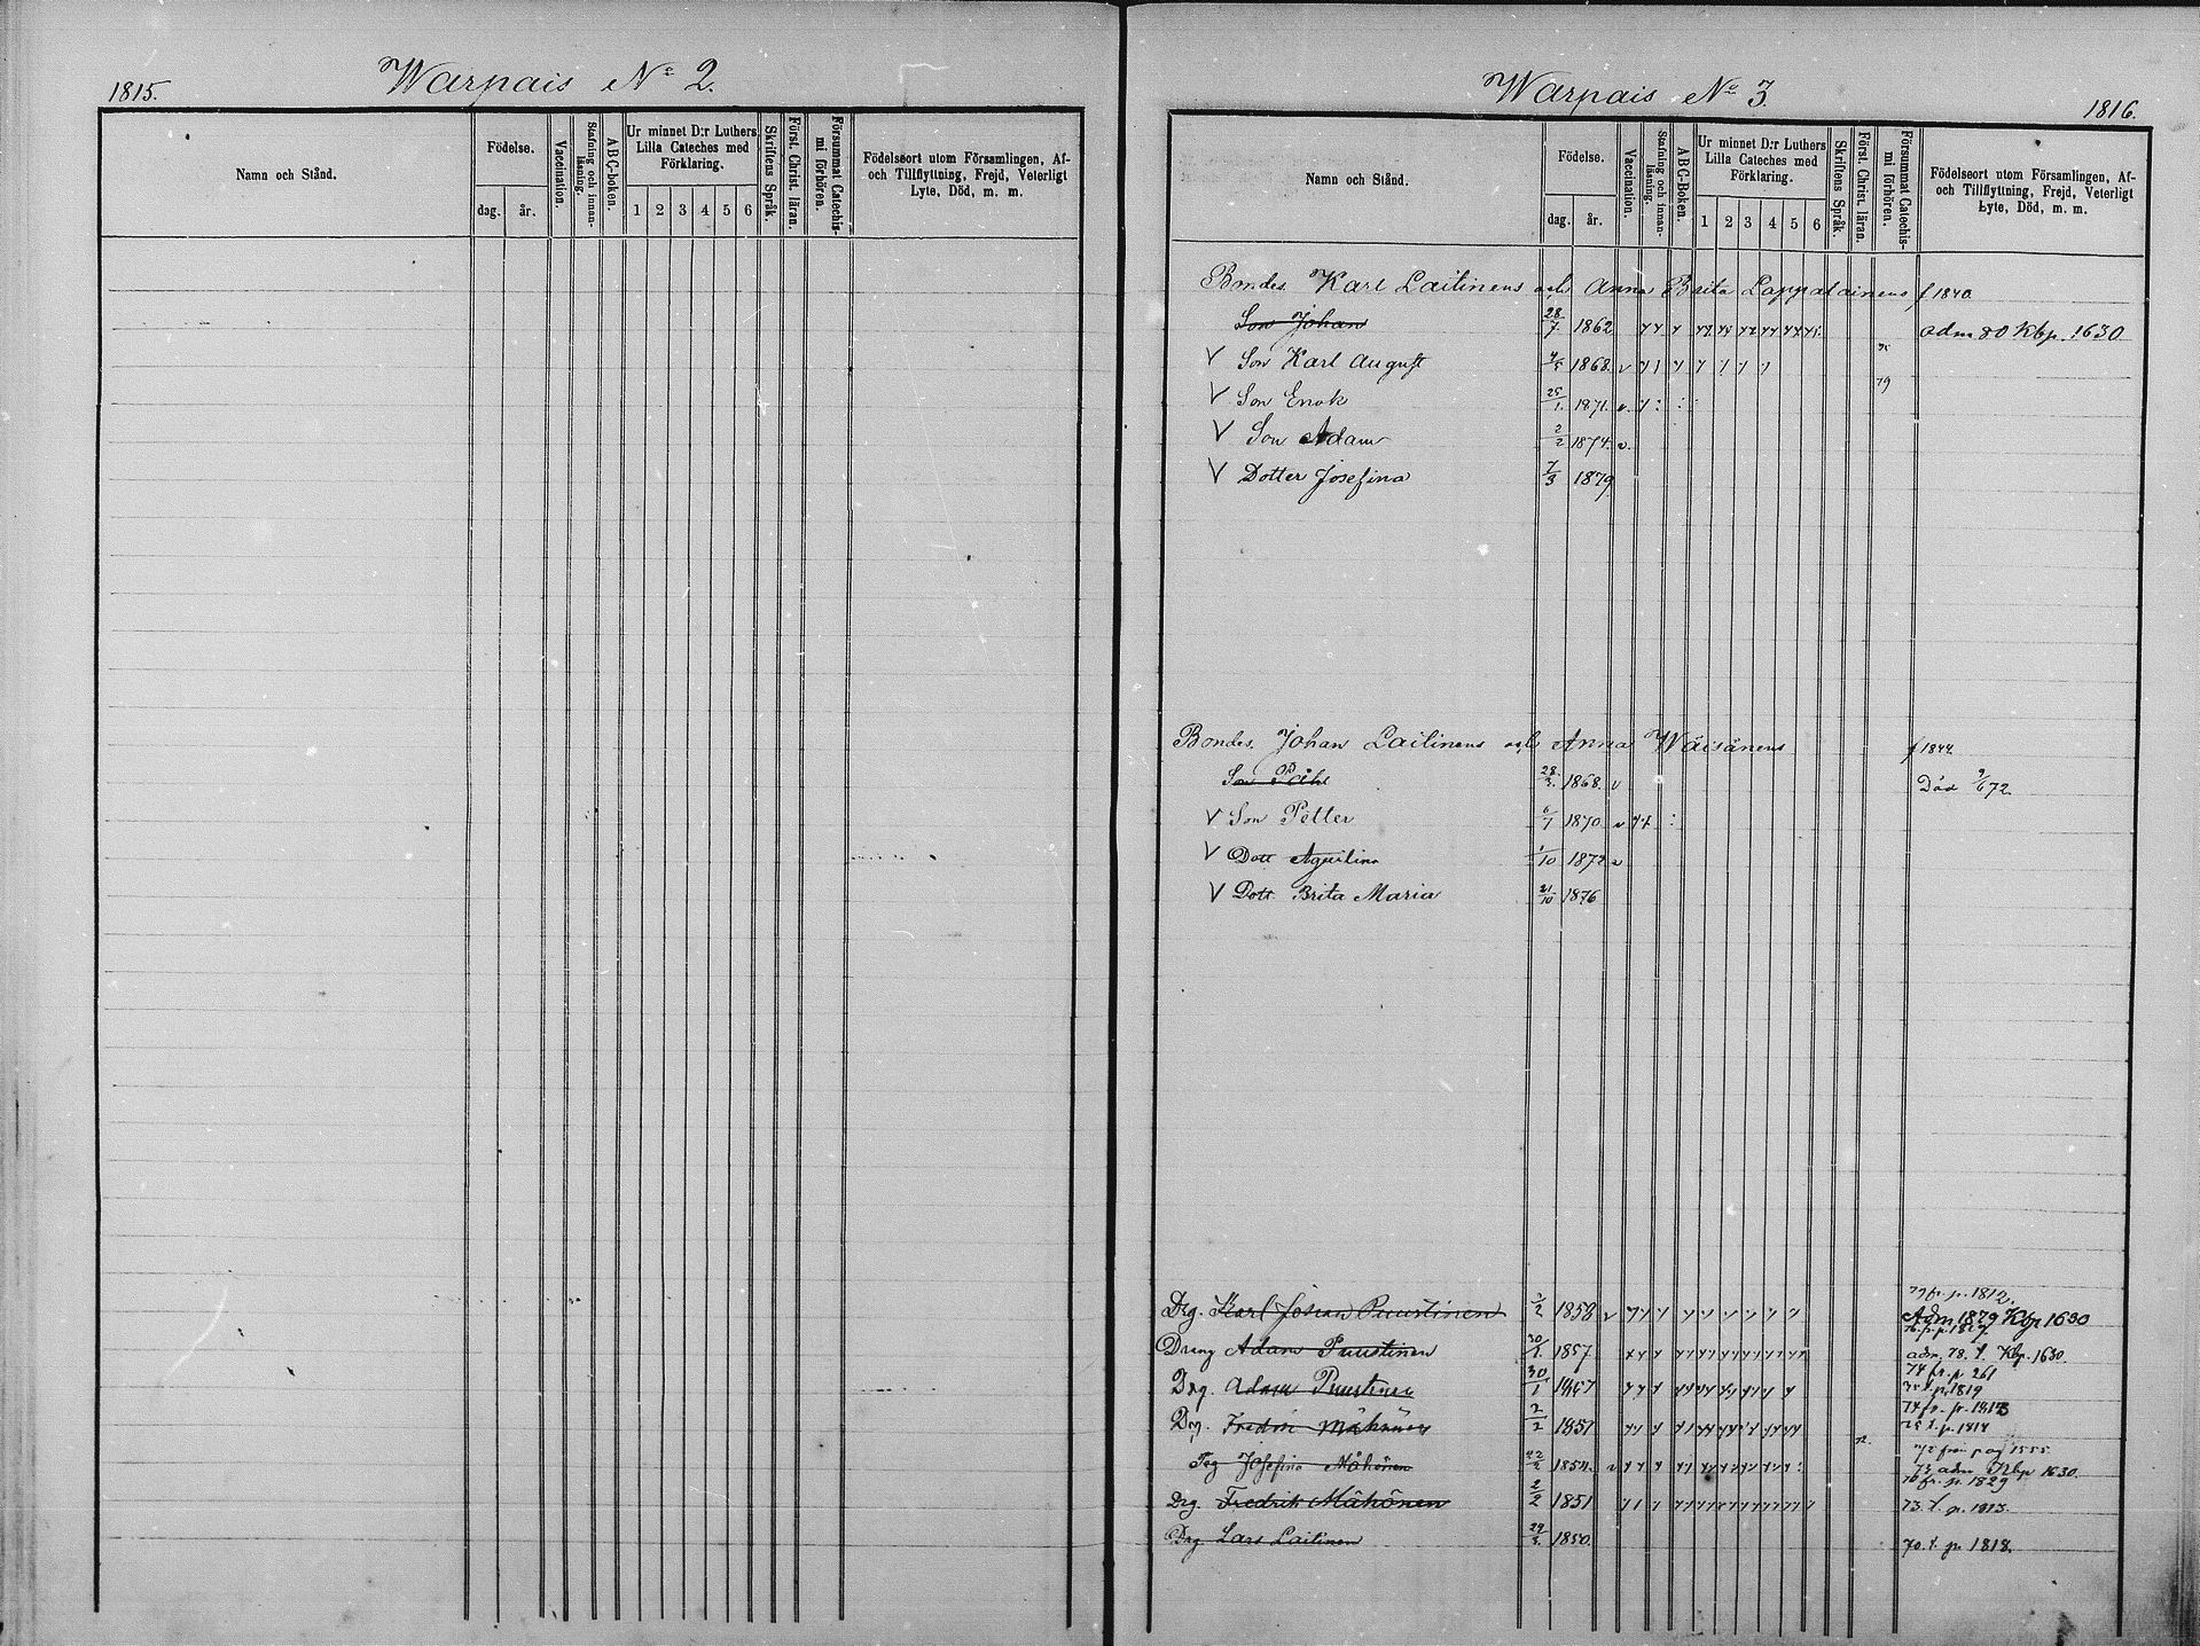 1815.
Warpais No 2.
Namn och Stånd.
Födelse.
dag. år.
Vaccination.
Stafning och innanläsning.
ABC-boken.
Ur minnet D:r Luthers
Lilla Cateches med
Förklaring.
1 2 3 4 5 6
Skriftens Språk.
Först. Christ. läran.
Försummat Catechismi förhören.
Födelseort utom Församlingen, Af-
och Tillflyttning, Frejd, Veterligt
Lyte, Död, m. m.
Warpais No 3.
1816.
Namn och Stånd.
Födelse.
dag. år.
Vaccination.
Stafning och innanläsning.
ABC-Boken.
Ur minnet D:r Luthers
Lilla Cateches med
Förklaring.
1 2 3 4 5 6
Skriftens Språk.
Först. Christ. läran.
Försummat Catechismi förhören.
Födelseort utom Församlingen, Af-
och Tillflyttning, Frejd, Veterligt
Lyte, Död, m. m.
Bondes Karl Laitinens och Anna Brita Lappalainens f 1840.
Son Johan 28/7 1862 adm 80 Kbp. 1630
V Son Karl August 4/5 1868. v
79
V Son Enok 25/1. 1871. v.
V Son Adam 2/2 1874. v.
V Dotter Josefina 7/3 1879
Bondes Johan Laitinens och Anna Wäisänens f 1844.
Son Påhl 28/3. 1868. v Död 9/6 72.
V Son Petter 6/7 1870 v
V Dott Aqvilina 1/10 1872 v
V Dott. Brita Maria 21/10 1876
79 fr. p. 1812.
Drg. Karl Johan Puustinen 3/2 1858 v Adm 1879 Kbp 1630
Dräng Adam Puustinen 30/1. 1857 adm. 78. t. Kbp. 1630.
74 fr. p 261
Drg. Adam Puustinen 30/1 1857 p. 1819
74 fr. p. 1813
Drg. Fredrik Mähönen 2/2 1851 75 t. p. 1814
72 från pag 1555.
Pig Josefina Mähönen 22/2 1854. v 73 adm Kbp 1630.
76 fr. p. 1829
Drg. Fredrik Mähönen 2/2 1851 73. t. p. 1813.
Drg Lars Laitinen 29/3. 1850. 70. t. p. 1818.